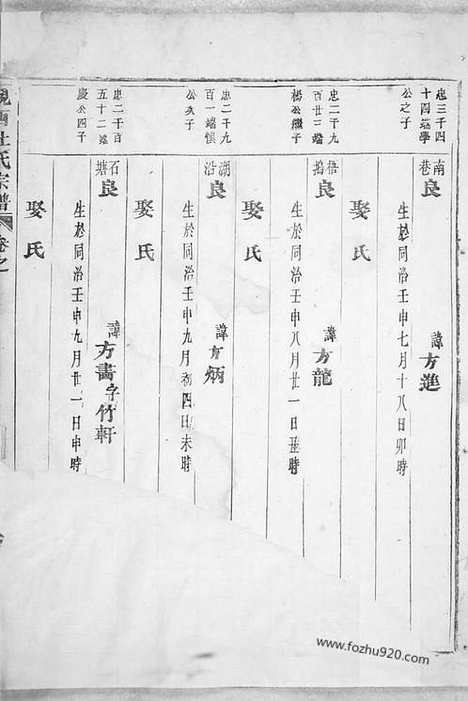 忠三千四
十四端學
公之子
南巷
良
諱方進
生於同治壬申七月十八日卯時
娶氏
忠二千九
百廿三端
楊公繼子
梧塢
良
諱方龍
生於同治壬申八月廿一日丑時
娶氏
忠二千九
百一端懷
公次子
湖沿
良
諱方炳
生於同治壬申九月初四日未時
娶氏
忠二千百
五十二端
慶公四子
石塘
良
諱方畵字竹軒
生於同治壬申九月廿一日申時
娶氏
杜氏宗譜
卷之
www.fozhu920.com